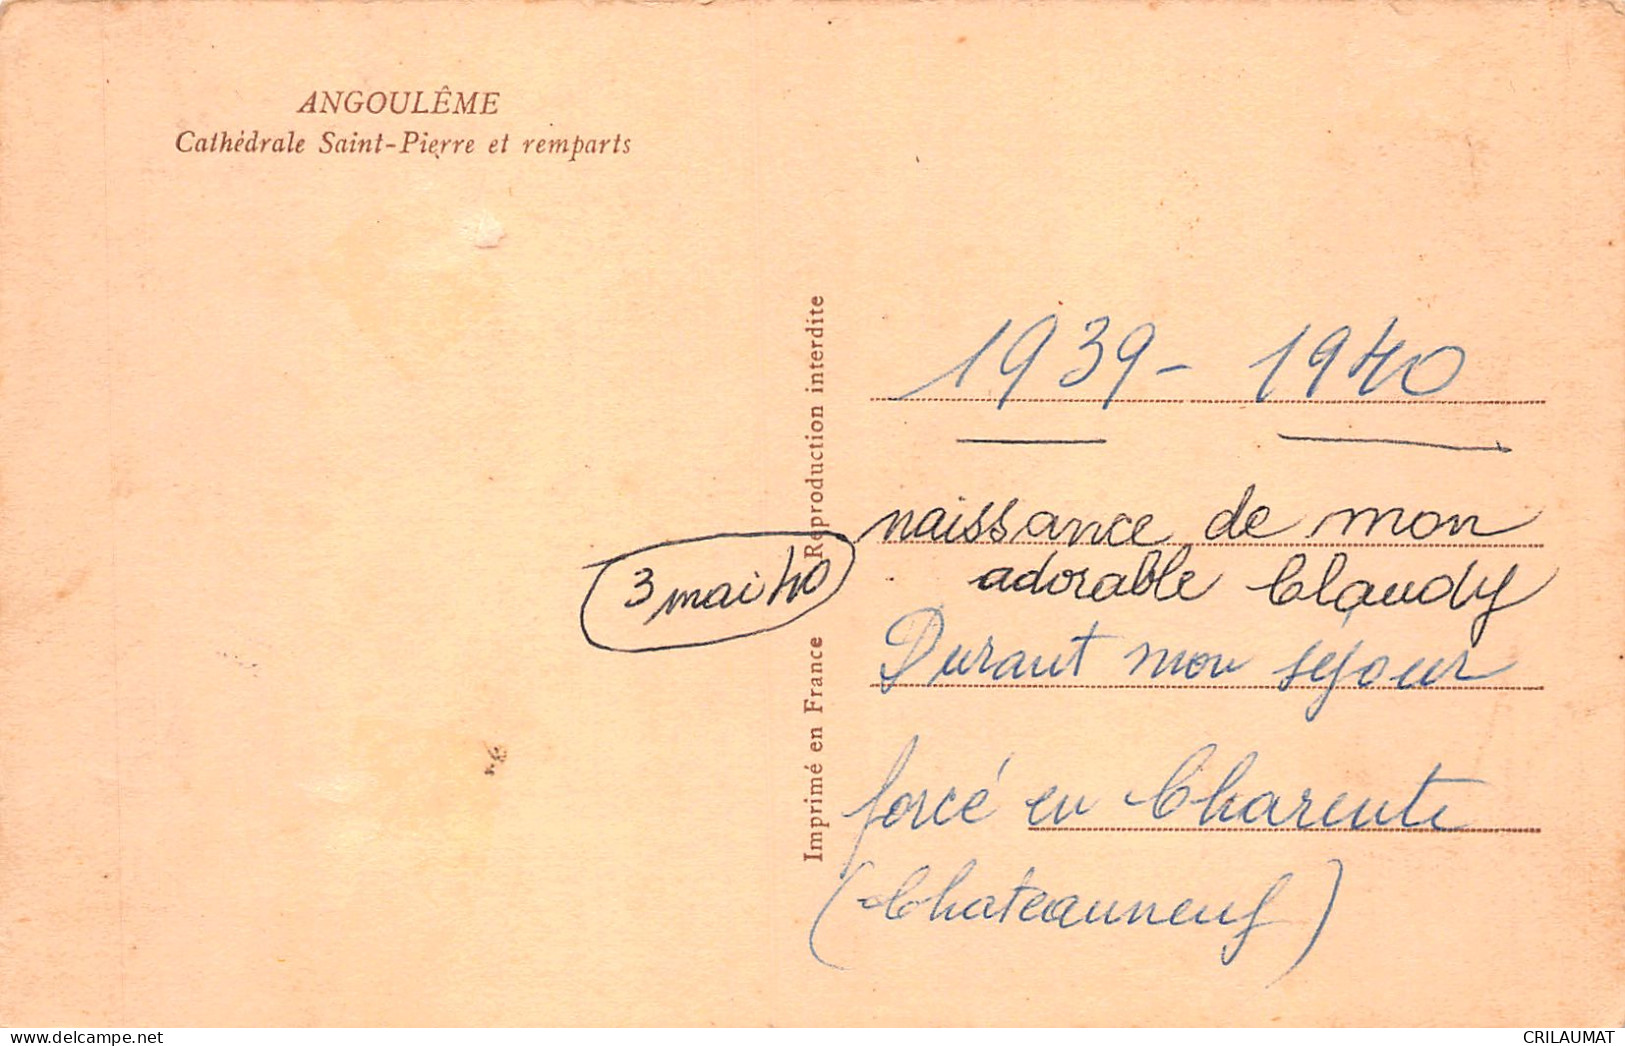 ANGOULÊME
Cathédrale Saint-Pierre et remparts
Imprimé en France Reproduction interdite
1939 - 1940
naissance de mon
adorable Claudy
3 mai 40
Durant mon séjour
forcé en Charente
(Chateauneuf)
delcampe.net
CRILAUMAT